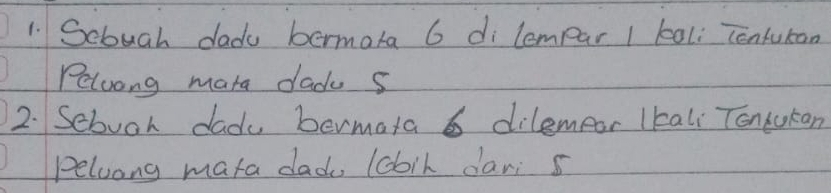 1. Sebuah dadu bermata 6 di lempar 1 kali Tentukan
Peluang mata dadu 5
2. Sebuah dadu bermata 6 dilempar 1 kali Tentukan
peluang mata dadu lebih dari 5